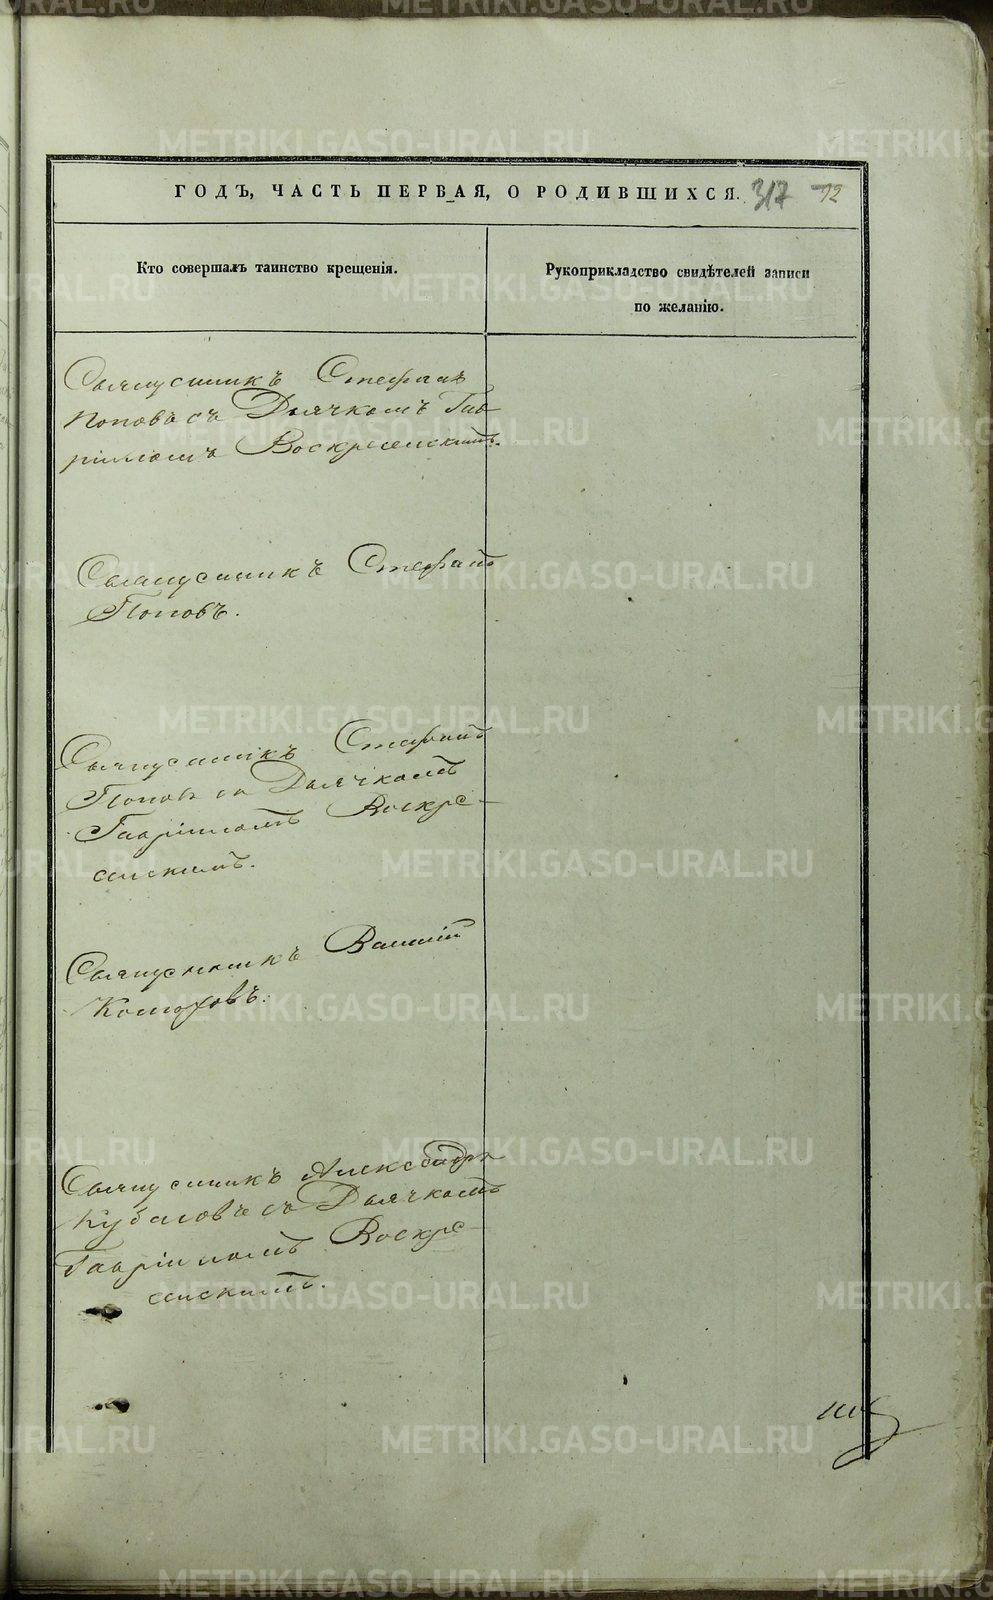 ГОДЪ, ЧАСТЬ ПЕРВАЯ, О РОДИВШИХСЯ. 317 12
Кто совершалъ таинство крещенія.
Рукоприкладство свидѣтелей записи
по желанію.
Священникъ Стефанъ
Поповъ съ Дьячкомъ Гав
ріиломъ Воскресенскимъ.
Священникъ Стефанъ
Поповъ.
Священникъ Стефанъ
Поповъ съ Дьячкомъ
Гавріиломъ Воскре-
сенскимъ.
Священникъ Василій
Священникъ Александръ
съ Дьячкомъ
Гавріиломъ Воскре-
сенскимъ.
METRIKI.GASO-URAL.RU